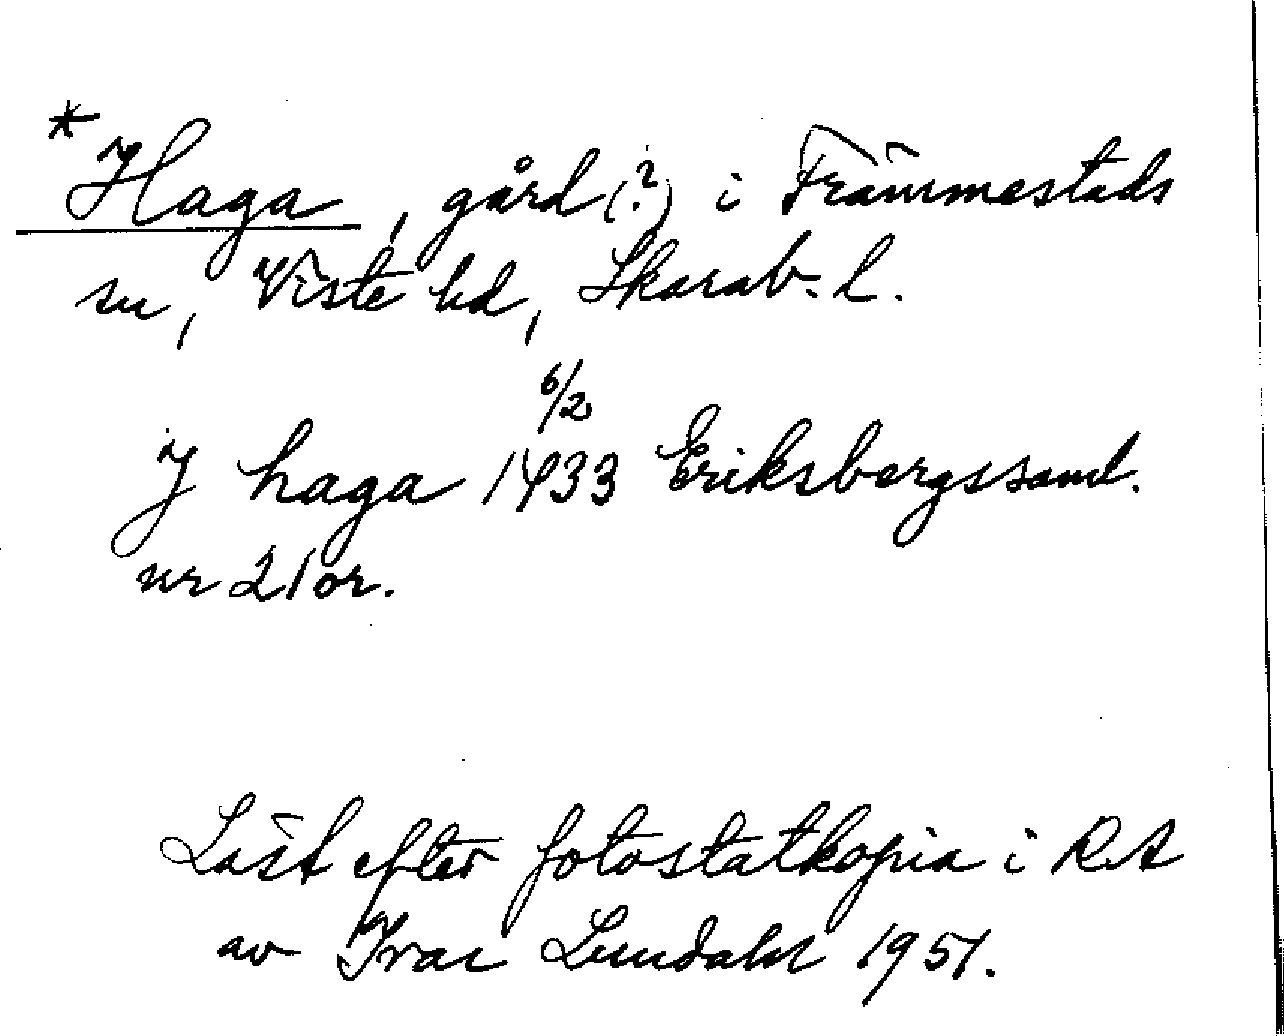 *Haga, gård (?) i Främmestads
sn, Viste hd, Skarab. l.
J haga 6/2 1433 Eriksbergssaml.
nr 21 or.
Läst efter fotostatkopia i RA
av Ivar Lundahl 1951.